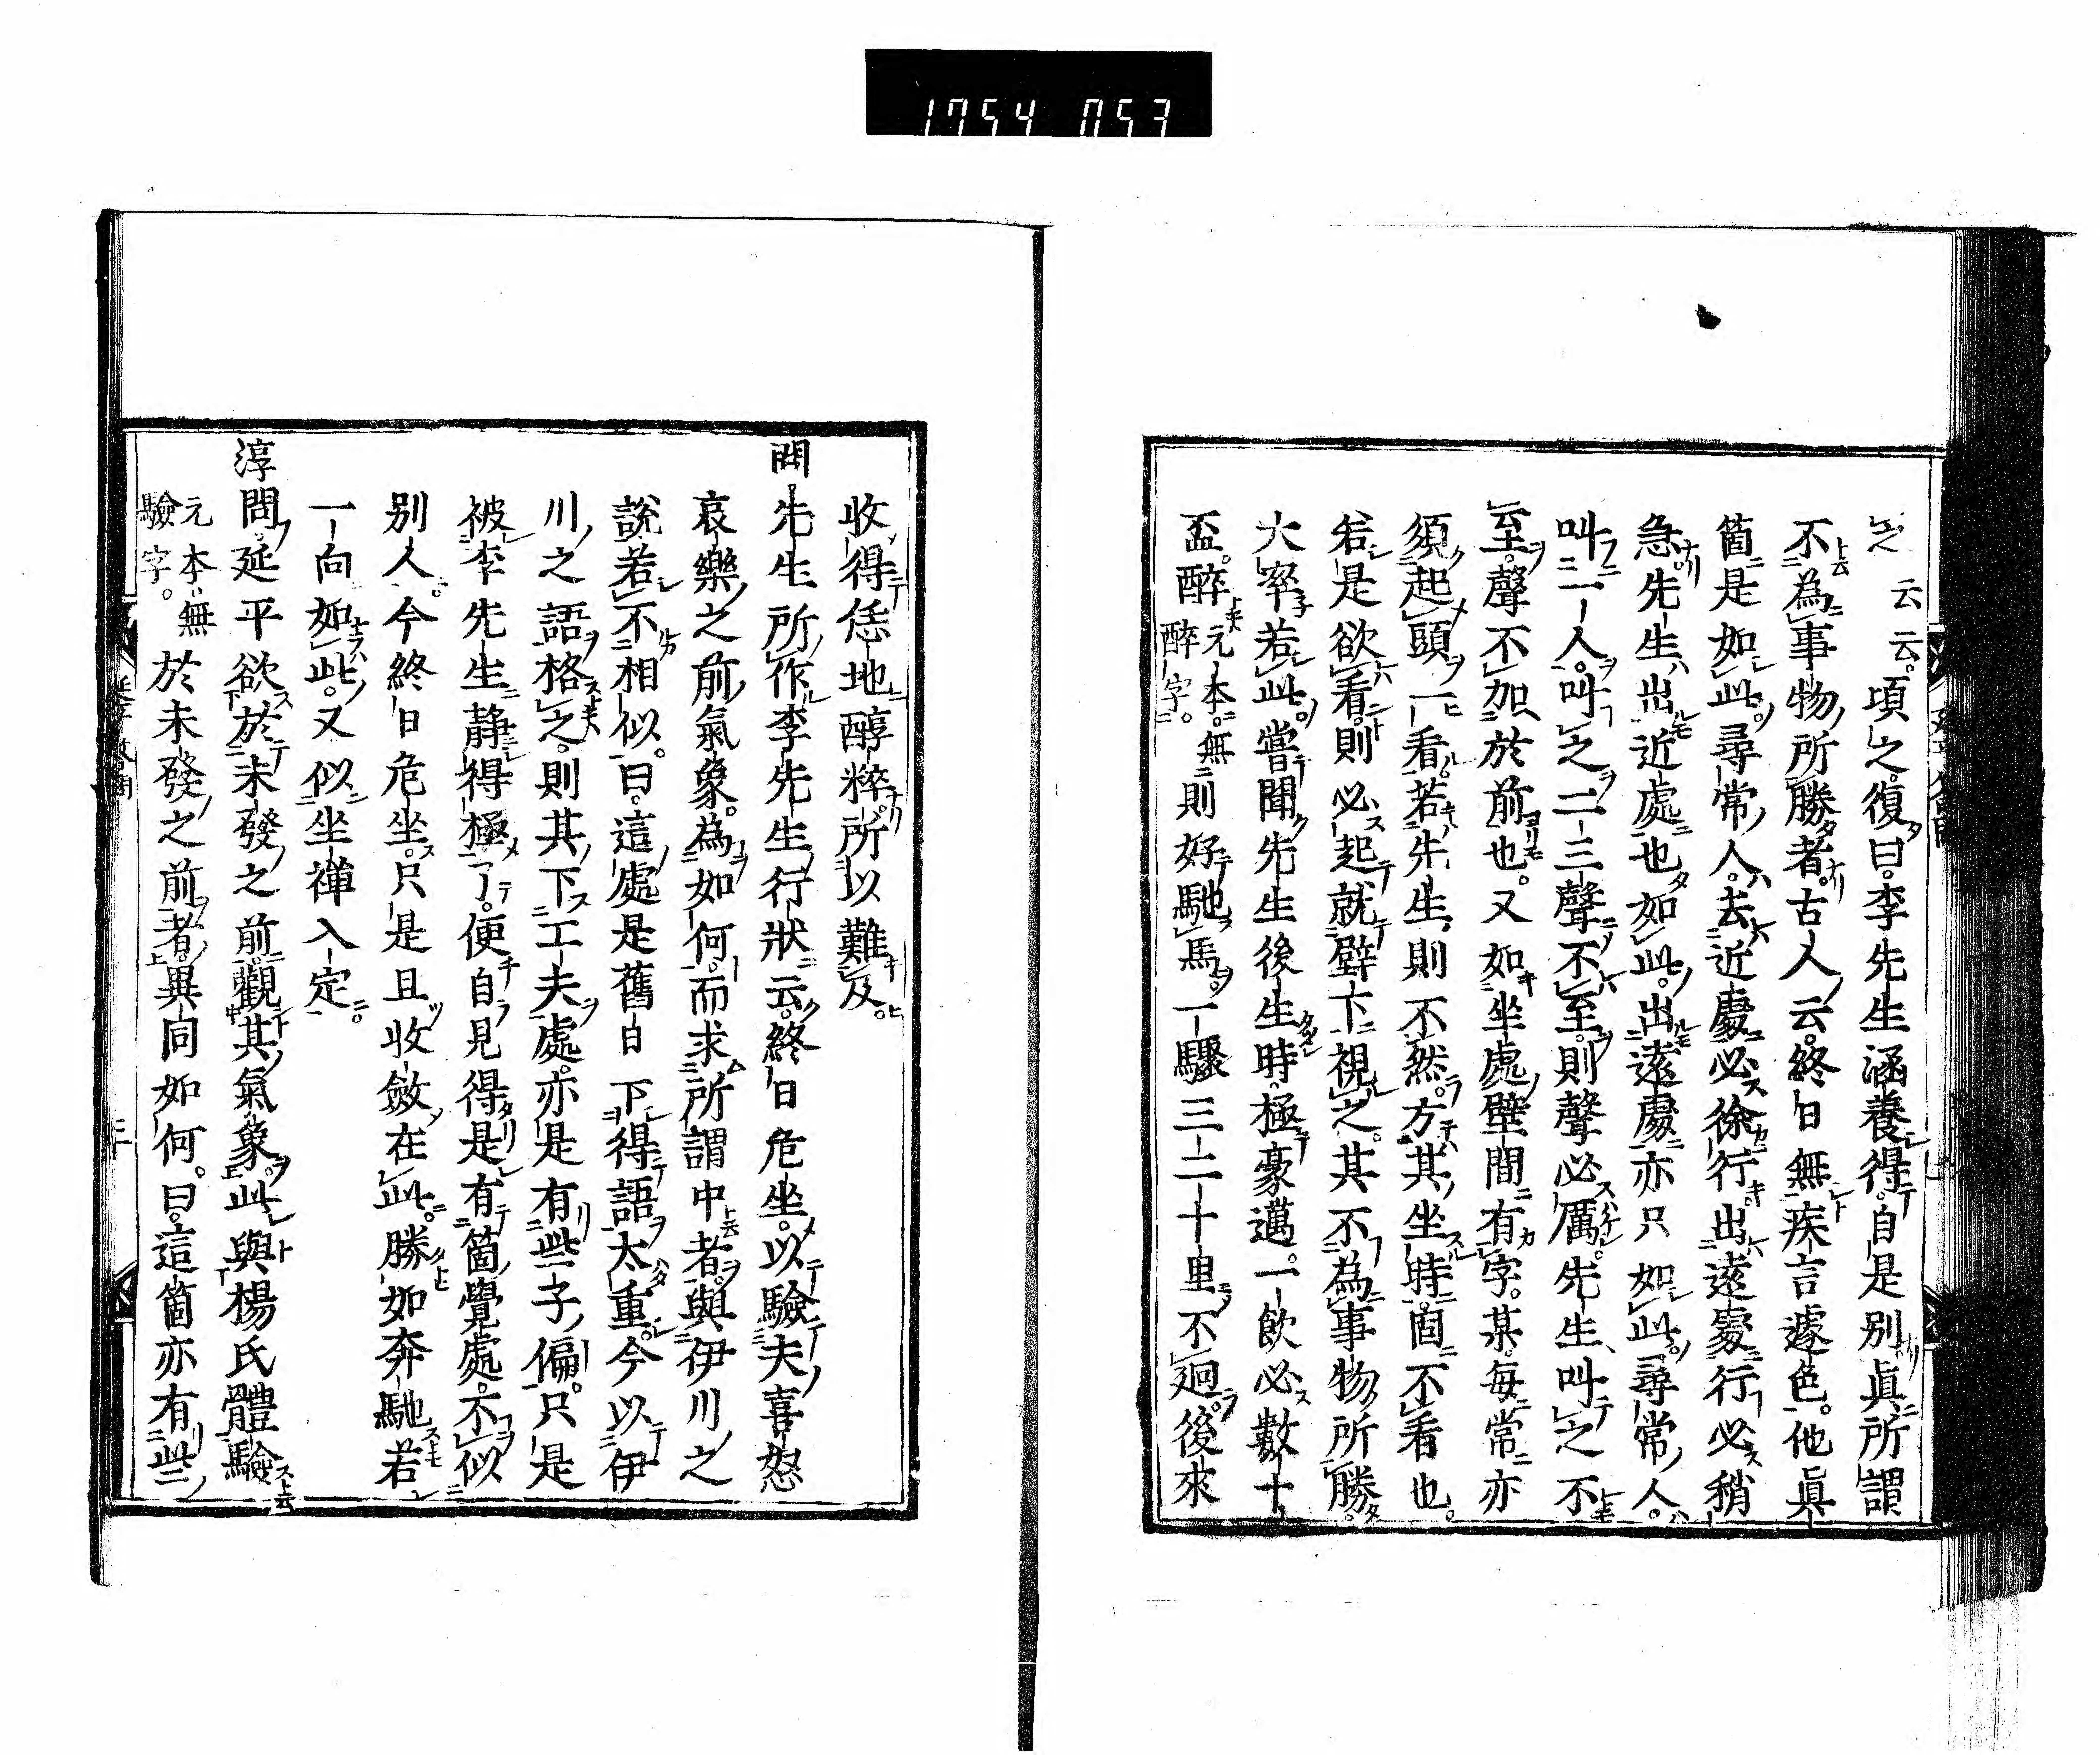 1754 053
云云。頃之。復曰。李先生涵養得。自是別眞所謂
不為事物所勝者。古人云。終日無疾言遽色。他眞
箇是如此。尋常人。去近處必徐行。出遠處行必稍
急。先生出近處也如此。出遠處亦只如此。尋常人。
叫一人。叫之二三聲不至。則聲必厲。先生叫之不
至。聲不加於前也。又如坐處壁間有字。某每常亦
須起頭一看。若先生則不然。方其坐時。固不看也。
若是欲看。則必起就壁下視之。其不為事物所勝。
大率若此。嘗聞先生後生時。極豪邁。一飲必數十
盃。醉
元本無
醉字。
則好馳馬。一驟三二十里不廻。後來
收得恁地醇粹。所以難及。
問。先生所作李先生行狀云。終日危坐。以驗夫喜怒
哀樂之前氣象。為如何。而求所謂中者。與伊川之
說若不相似。曰。這處是舊日下得語太重。今以伊
川之語格之。則其下工夫處。亦是有些子偏。只是
被李先生靜得極了。便自見得是有箇覺處。不似
別人。今終日危坐。只是且收斂在此。勝如奔馳。若
一向如此。又似坐禪入定。
淳問。延平欲於未發之前。觀其氣象。此與楊氏體驗
元本無
驗字。
於未發之前者。異同如何。曰。這箇亦有些